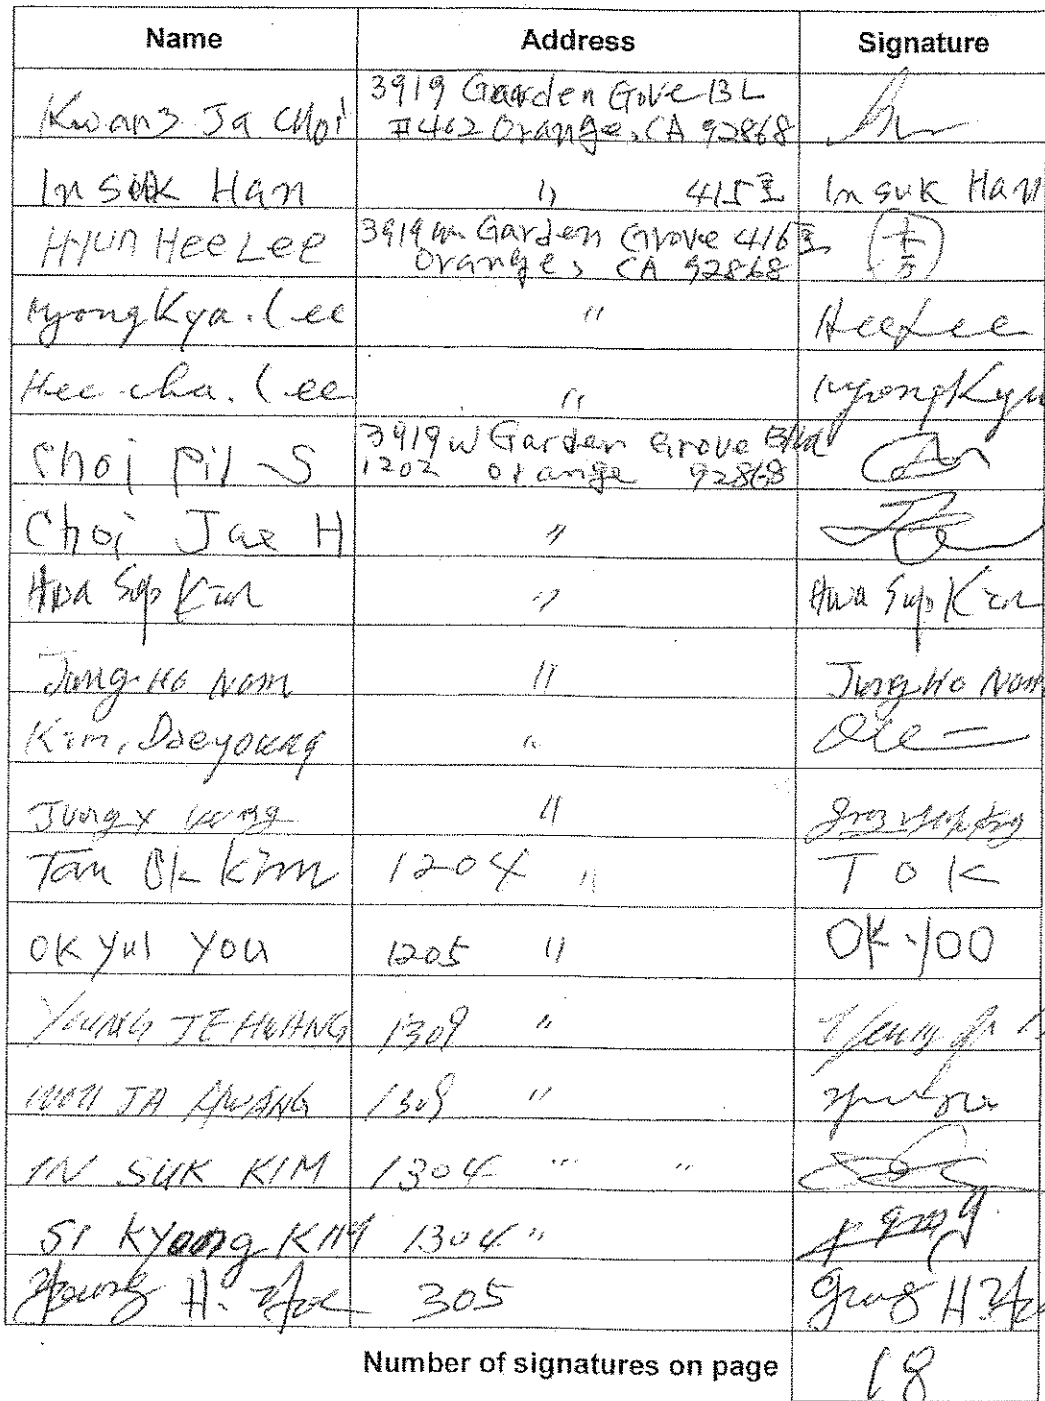 Name Address Signature
Kwang Ja Choi 3919 Gaarden Gove BL
#402 Orange, CA 92868
In Suk Han " 415호 In suk Han
Hyun Hee Lee 3919 w. Garden Grove 416호
Orange, CA 92868
Myong Kyu. Lee " Hee Lee
Hee cha. Lee " Myong Kyu
Choi Pil S 3919 W Garden Grove Blvd
1202 orange 92868
Choi Jae H "
Hwa Sup Kim " Hwa Sup Kim
Jung Ho Nom " Jung Ho Nom
Kim, Daeyoung "
Jung "
Tan Ok Kim 1204 " T O K
OK Yul You 1205 " OK YOO
YOUNG JE HWANG 1309 "
WON JA HWANG 1309 "
IN SUK KIM 1304 " "
SI Kyoung KIM 1304 "
H. 305
Number of signatures on page 18